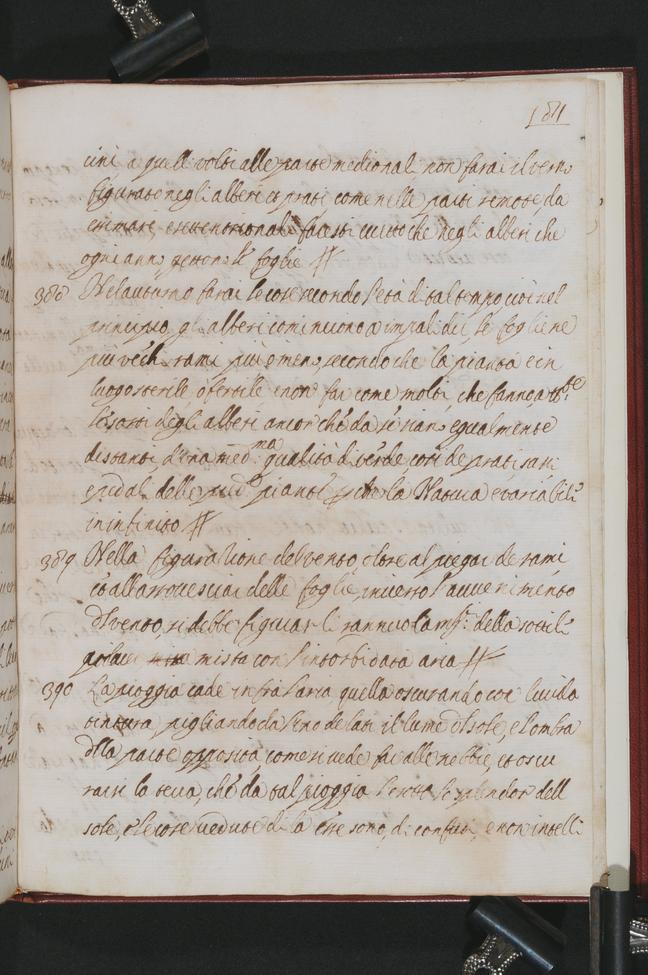 184
cini a quelli volti alle parte medionali non farai il verno
figurate negli alberi et prati come nelle parti remote da
et settentrionali facesti eccetto che negli alberi che
ogni anno gettono le foglie
388 Nel autunno farai le cose secondo l'età di tal tempo cioè nel
principio gl'alberi cominciono a impalidir le foglie ne
più vechi rami più o meno, secondo che la pianta è in
luogo sterile ò fertile e non far come molti, che fanno tutte
le sorti degli alberi ancor che da sè siano egualmente
distanti d'una med.ma qualità di verde così de prati sassi
et pedali delle pred.e piante perche la Natura è variabile
in infinito
389 Nella figurazione del vento, oltre al piegar de rami
et all'arrovesciar delle foglie, inverso l'avvenimento
d'l vento, si debbe figurar li rannuolam.ti della sottil
polvere mista con l'intorbidata aria
390 La pioggia cade infra l'aria, quella oscurando con lucida
tintura pigliando da l'uno de lati il lume d'l sole, e l'ombra
d'lla parte opposita come si vede far alle nebbie, et oscu
rasi la terra, che da tal pioggia l'è tolto lo splendor dell
sole, e le cose vedute di là da essa sono, di confusi, e non intelli